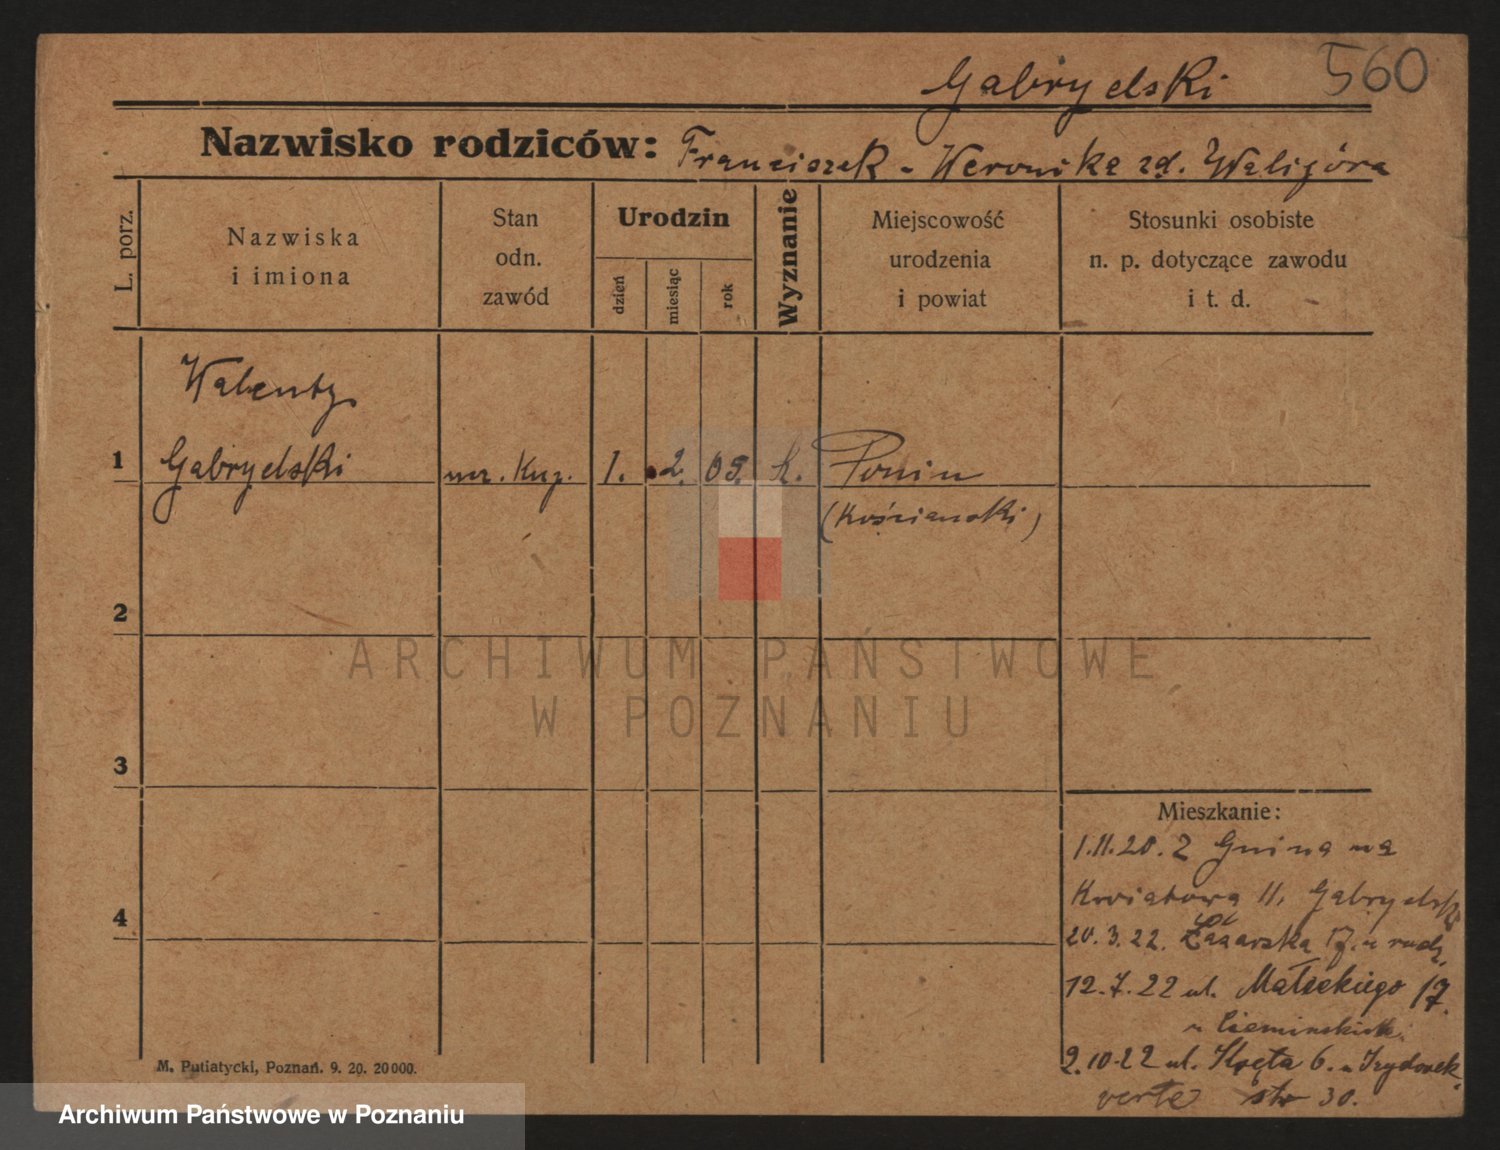 Gabryelski 560
Nazwisko rodziców: Franciszek - Weronika zd. Waligóra
L. porz.
Nazwiska
i imiona
Stan
odn.
zawód
Urodzin
dzień
miesiąc
rok
Wyznanie
Miejscowość
urodzenia
i powiat
Stosunki osobiste
n. p. dotyczące zawodu
i t. d.
Walenty
1 Gabryelski ucz. Kup. 1. 2. 05. k. Ponin
(Kościański)
2
ARCHIWUM PAŃSTWOWE
W POZNANIU
3
Mieszkanie:
1.11.20. Z Gnina na
4 Kwiatowa 11, Gabryelski
20.3.22. Łazarska 17. u
12.7.22 ul. Małeckiego 17.
u
2.10.22 ul. Kręta 6. u
verte str 30.
M. Putiatycki, Poznań. 9. 20. 20000.
Archiwum Państwowe w Poznaniu